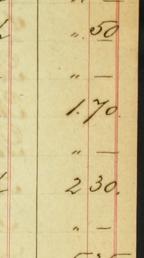 " —
" 50
" —
1.70.
" —
2 30.
" —